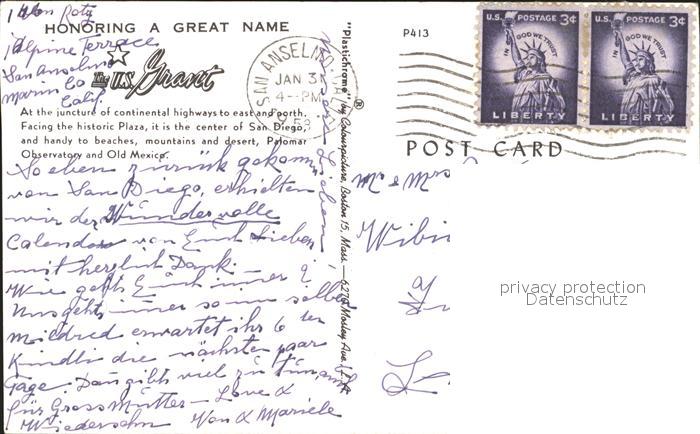 Roty
HONORING A GREAT NAME
1 Alpine Terrace
San Anselmo
Marin Co
Calif.
The U.S. Grant
At the juncture of continental highways to east and north.
Facing the historic Plaza, it is the center of San Diego,
and handy to beaches, mountains and desert, Palomar
Observatory and Old Mexico.
So eben zurück gekommen
von San Diego, erhielten
wir der Wundervolle
Calendar von Euch Lieben
mit herzlich Dank.
Wie gehts Euch immer?
Uns gehts immer so im selben
Mildred erwartet ihr 6 ten
Kindli die nächsten paar
Tage. Dan gibts viel zu tun,
für Gross Mütter - Love &
Wiedersehn Von & Mariele
"Plastichrome" by Colourpicture, Boston 15, Mass.
SAN ANSELMO
JAN 31
4-PM
P413
U.S. POSTAGE 3¢
IN GOD WE TRUST
LIBERTY
U.S. POSTAGE 3¢
IN GOD WE TRUST
LIBERTY
POST CARD
privacy protection
Datenschutz